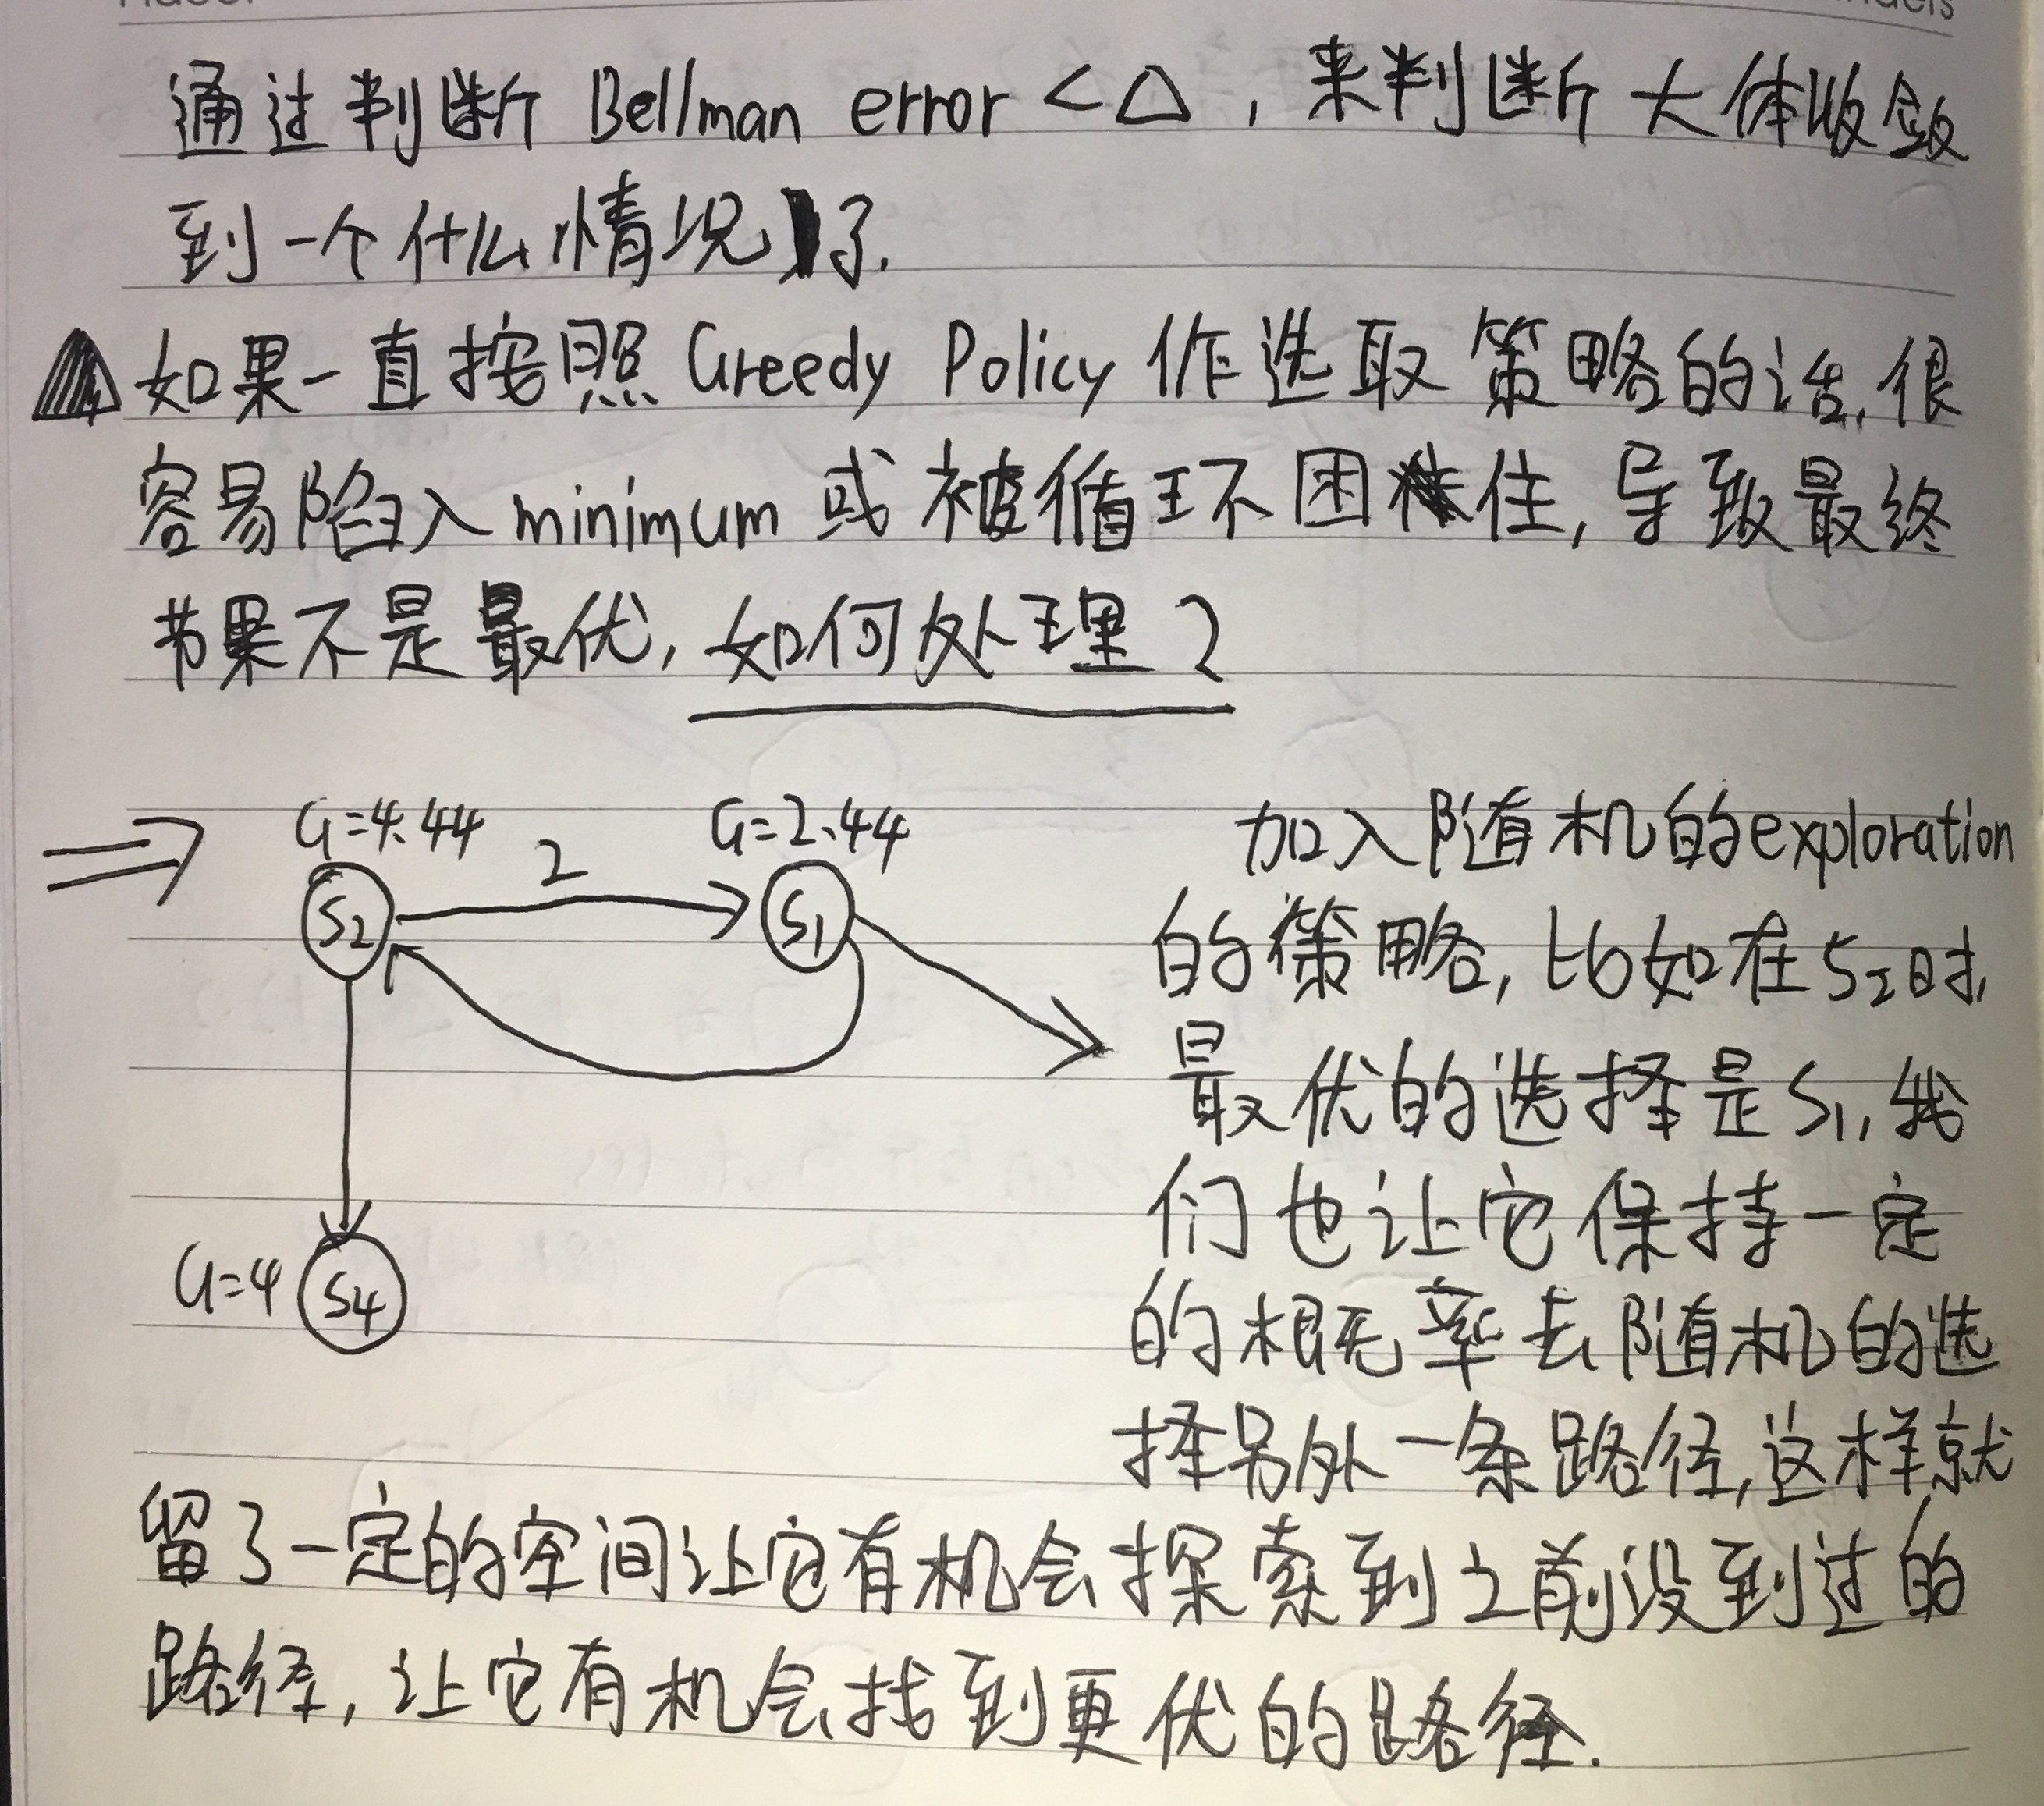 通过判断 Bellman error < △, 来判断大体收敛
到一个什么情况了.
如果一直按照 Greedy Policy 作选取策略的话, 很
容易陷入 minimum 或被循环困住, 导致最终
结果不是最优, 如何处理?
⇒ G=4.44 2 G=2.44
S2 S1
G=4 S4
加入随机的exploration
的策略, 比如在S2时,
最优的选择是S1, 我
们也让它保持一定
的概率去随机的选
择另外一条路径, 这样就
留了一定的空间让它有机会探索到之前没到过的
路径, 让它有机会找到更优的路径.